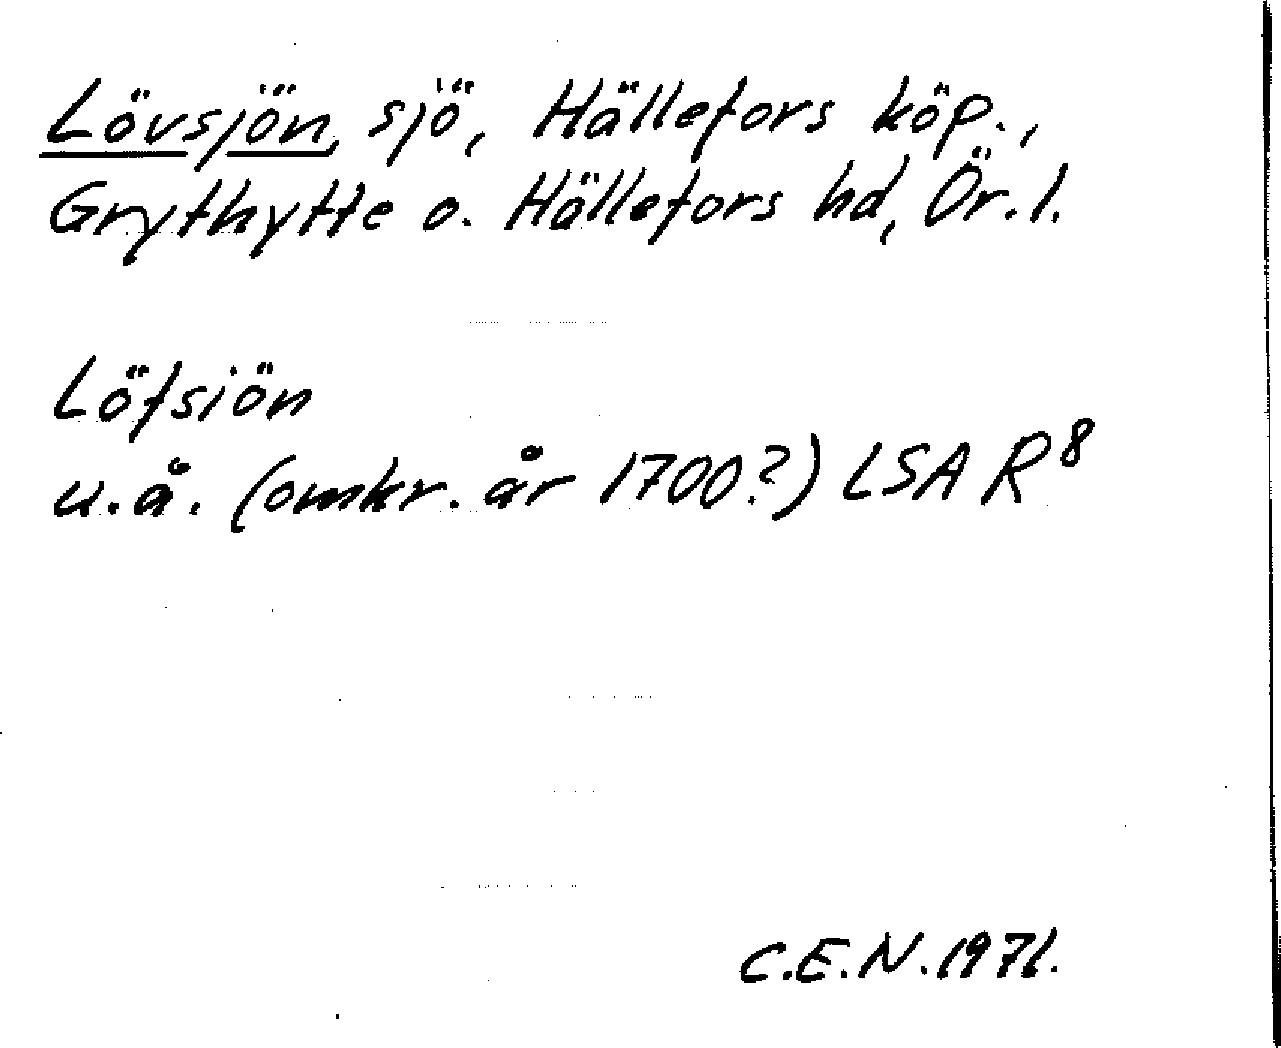 Lövsjön, sjö, Hällefors köp.,
Grythytte o. Hällefors hd, Ör. l.
Löfsiön
u.å. (omkr. år 1700?) LSA R⁸
C.E.N. 1971.